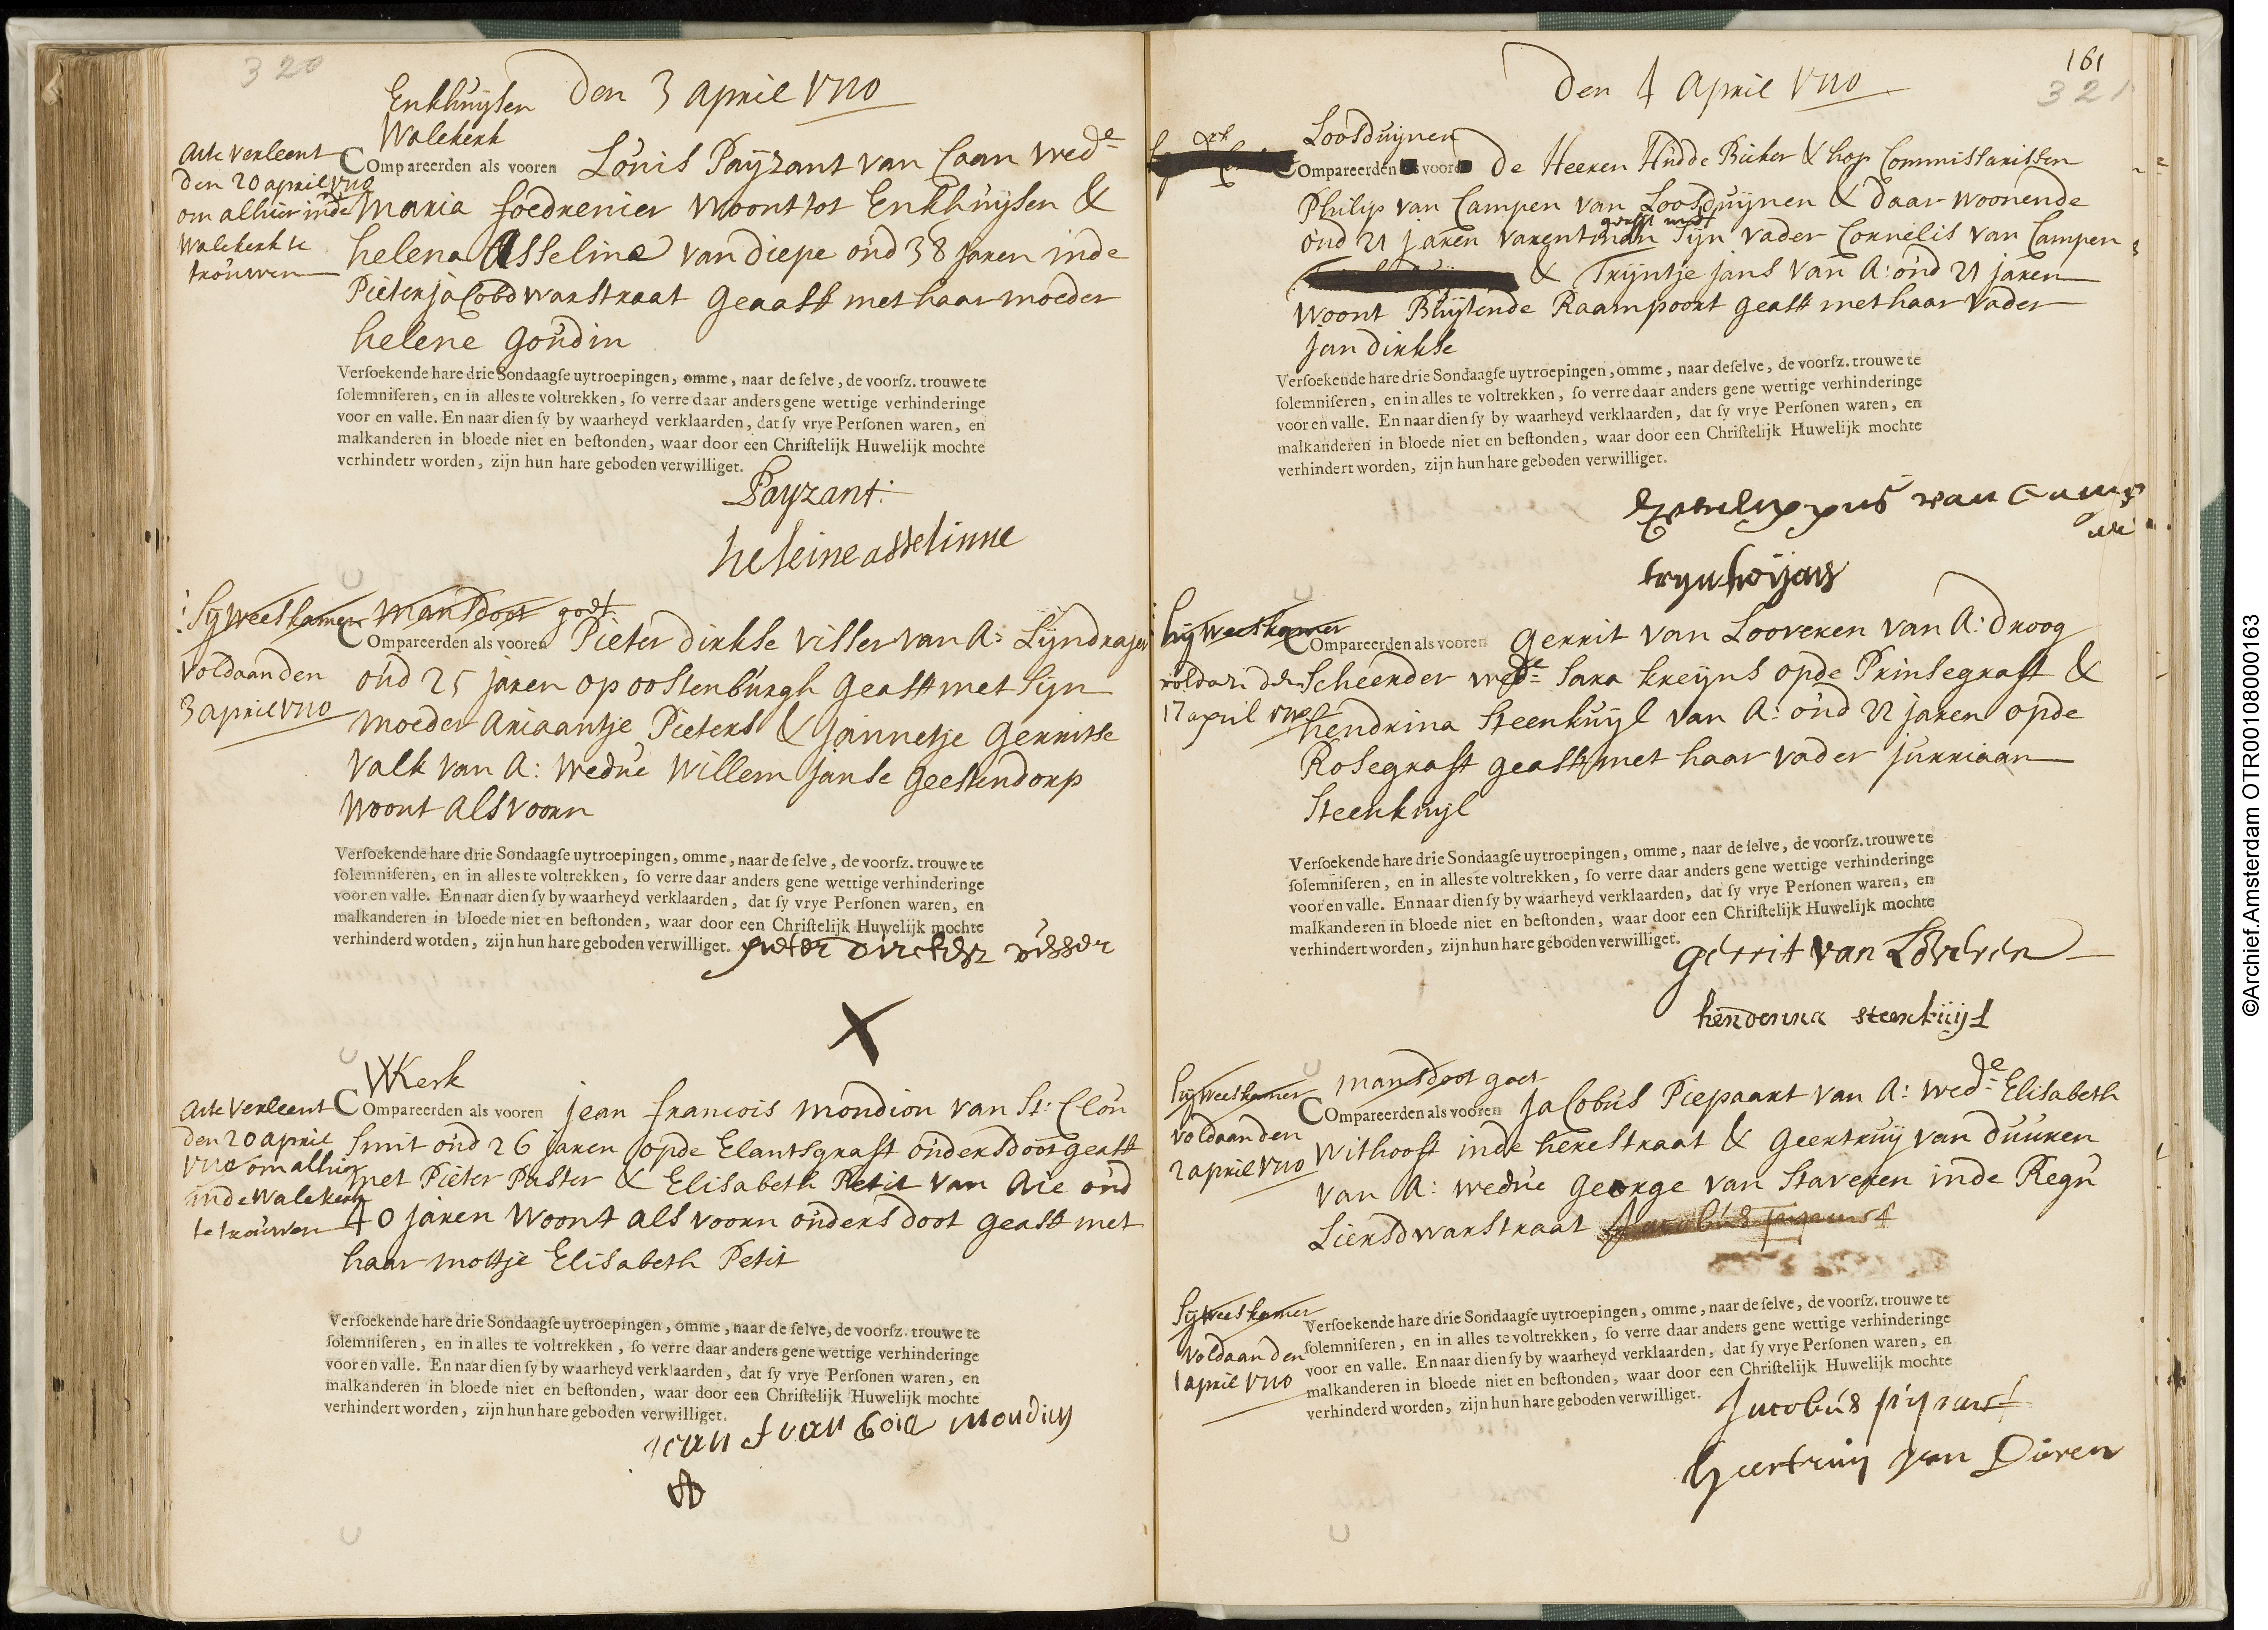 320
Enkhuysen Den 3 april 1710
Walekerk
Acte verleent
den 20 april 1710
om alhier inde
Walekerk te
trouwen
Compareerden als vooren Louis Payzant van Caan wed:e
Maria foedrenier woont tot Enkhuysen &
helena Asseline van diepe oud 38 jaren inde
Pieter jacobdwarstraat geasst met haar moeder
helene Goudin
Versoekende hare drie Sondaagse uytroepingen, omme, naar de selve, de voorsz. trouwe te
solemniseren, en in alles te voltrekken, so verre daar anders gene wettige verhinderinge
voor en valle. En naar dien sy by waarheyd verklaarden, dat sy vrye Personen waren, en
malkanderen in bloede niet en bestonden, waar door een Christelijk Huwelijk mochte
verhindetr worden, zijn hun hare geboden verwilliget.
Payzant
heleine asselinne
Sy Weeskamer Mansdoot goet
voldaan den
3 april 1710
Compareerden als vooren Pieter dirkse visser van A: Lijndrager
oud 25 jaren op oostenburgh geasst met sijn
moeder Ariaantje Pieters & jannetje Gerritse
Valk van A: wedue willem janse geestendorp
woont als voorn
Versoekende hare drie Sondaagse uytroepingen, omme, naar de selve, de voorsz. trouwe te
solemniseren, en in alles te voltrekken, so verre daar anders gene wettige verhinderinge
voor en valle. En naar dien sy by waarheyd verklaarden, dat sy vrye Personen waren, en
malkanderen in bloede niet en bestonden, waar door een Christelijk Huwelijk mochte
verhinderd wotden, zijn hun hare geboden verwilliget. pieter dircksz visser
X
WKerk
Acte verleent
den 20 april
1710 om alhier
inde Walekerk
te trouwen
Compareerden als vooren jean francois mondion van St: Clou
smit oud 26 jaren opde Elantsgraft ouders doot geasst
met Pieter Paster & Elisabeth Petit van Aie oud
40 jaren woont als voorn ouders doot geasst met
haar mottje Elisabeth Petit
Versoekende hare drie Sondaagse uytroepingen, omme, naar de selve, de voorsz. trouwe te
solemniseren, en in alles te voltrekken, so verre daar anders gene wettige verhinderinge
voor en valle. En naar dien sy by waarheyd verklaarden, dat sy vrye Personen waren, en
malkanderen in bloede niet en bestonden, waar door een Christelijk Huwelijk mochte
verhindert worden, zijn hun hare geboden verwilliget.
jean fransoie mondion
161
321
Den 4 April 1710
Loosduijnen
Compareerden als vooren De Heeren Hudde Bicker & hop Commissarissen
Philip van Campen van Loosduijnen & daar woonende
oud 21 jaren sijn vader Cornelis van Campen
& Trijntje jans van A: oud 21 jaren
woont Buijtende Raampoort geasst met haar vader
jan dirkse
Versoekende hare drie Sondaagse uytroepingen, omme, naar deselve, de voorsz. trouwe te
solemniseren, en in alles te voltrekken, so verre daar anders gene wettige verhinderinge
voor en valle. En naar dien sy by waarheyd verklaarden, dat sy vrye Personen waren, en
malkanderen in bloede niet en bestonden, waar door een Christelijk Huwelijk mochte
verhindert worden, zijn hun hare geboden verwilliget.
van Camp
en
hij Weeskamer
voldaan den
17 april 1710
Compareerden als vooren Gerrit van Looveren van A: droog
scheerder wed:e Sara kreyns opde Prinsegraft &
hendrina Steenkuijl van A: oud 22 jaren opde
Rosegraft geasst met haar vader jurriaan
Steenkuyl
Versoekende hare drie Sondaagse uytroepingen, omme, naar de selve, de voorsz. trouwe te
solemniseren, en in alles te voltrekken, so verre daar anders gene wettige verhinderinge
voor en valle. En naar dien sy by waarheyd verklaarden, dat sy vrye Personen waren, en
malkanderen in bloede niet en bestonden, waar door een Christelijk Huwelijk mochte
verhindert worden, zijn hun hare geboden verwilliget.
Gerrit van Loveren
steenkuijl
hij Weeskamer
voldaan den
2 april 1710
mansdoot goet
Compareerden als vooren Jacobus Piepaart van A: wed:e Elisabeth
Withooft inde herestraat & Geertruij van duuren
van A: wedue George van Staveren inde Regu
Liersdwarstraat
Sy Weeskamer
voldaan den
1 april 1710
Versoekende hare drie Sondaagse uytroepingen, omme, naar de selve, de voorsz. trouwe te
solemniseren, en in alles te voltrekken, so verre daar anders gene wettige verhinderinge
voor en valle. En naar dien sy by waarheyd verklaarden, dat sy vrye Personen waren, en
malkanderen in bloede niet en bestonden, waar door een Christelijk Huwelijk mochte
verhinderd worden, zijn hun hare geboden verwilliget.
Jacobus pijpaert
Geertruij van Duren
©Archief.Amsterdam OTR00108000163